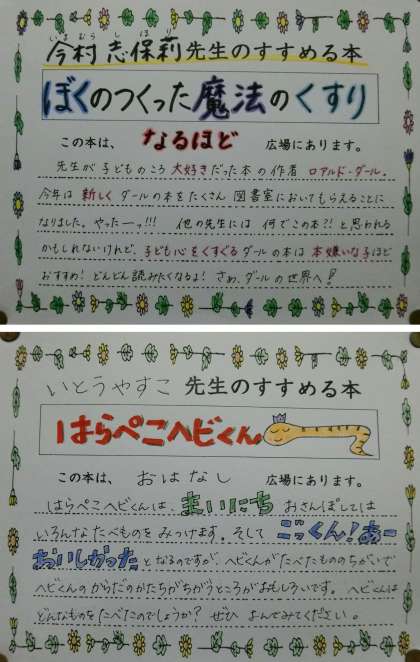 いまむら しほり
今村 志保莉先生のすすめる本
ぼくのつくった魔法のくすり
この本は、 なるほど 広場にあります。
先生が子どものころ大好きだった本の作者 ロアルド・ダール。
今年は新しくダールの本をたくさん図書室においてもらえることに
なりました。やったーッ!!! 他の先生には 何でこの本?!と思われる
かもしれないけれど、子ども心をくすぐるダールの本は本嫌いな子ほど
おすすめ!どんどん読みたくなるよ! さぁ、ダールの世界へ!
いとうやすこ 先生のすすめる本
はらぺこヘビくん
この本は、 おはなし 広場にあります。
はらぺこヘビくんは、まいにち おさんぽしては
いろんなたべものをみつけます。そして ごっくん!あー
おいしかった となるのですが、ヘビくんがたべたもののちがいで
ヘビくんのからだのかたちがちがうところがおもしろいです。ヘビくんは
どんなものをたべたのでしょうか? ぜひ よんでみてください。